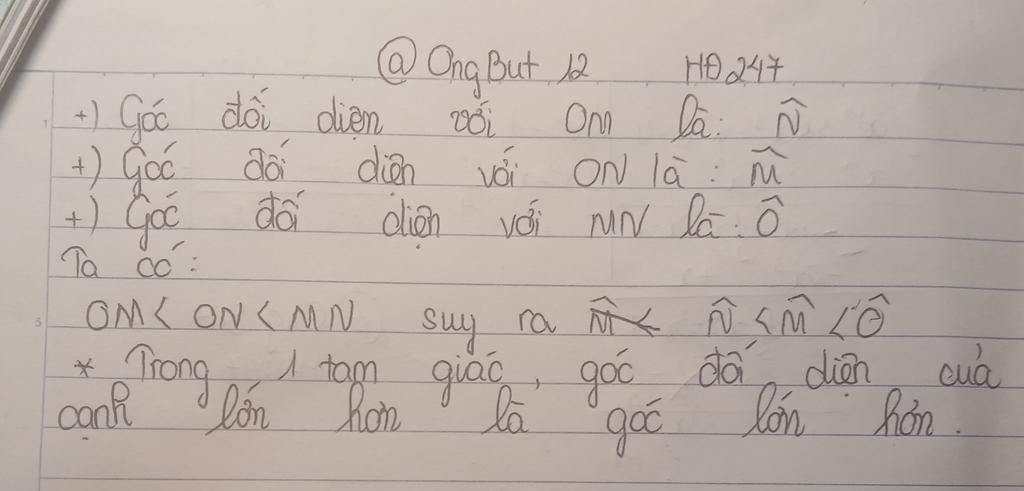 @OngBut 12 HĐ247
+) Góc đối diện với OM là: N̂
+) Góc đối diện với ON là: M̂
+) Góc đối diện với MN là: Ô
Ta có:
OM < ON < MN suy ra N̂ < M̂ < Ô
* Trong 1 tam giác, góc đối diện của
cạnh lớn hơn là góc lớn hơn.